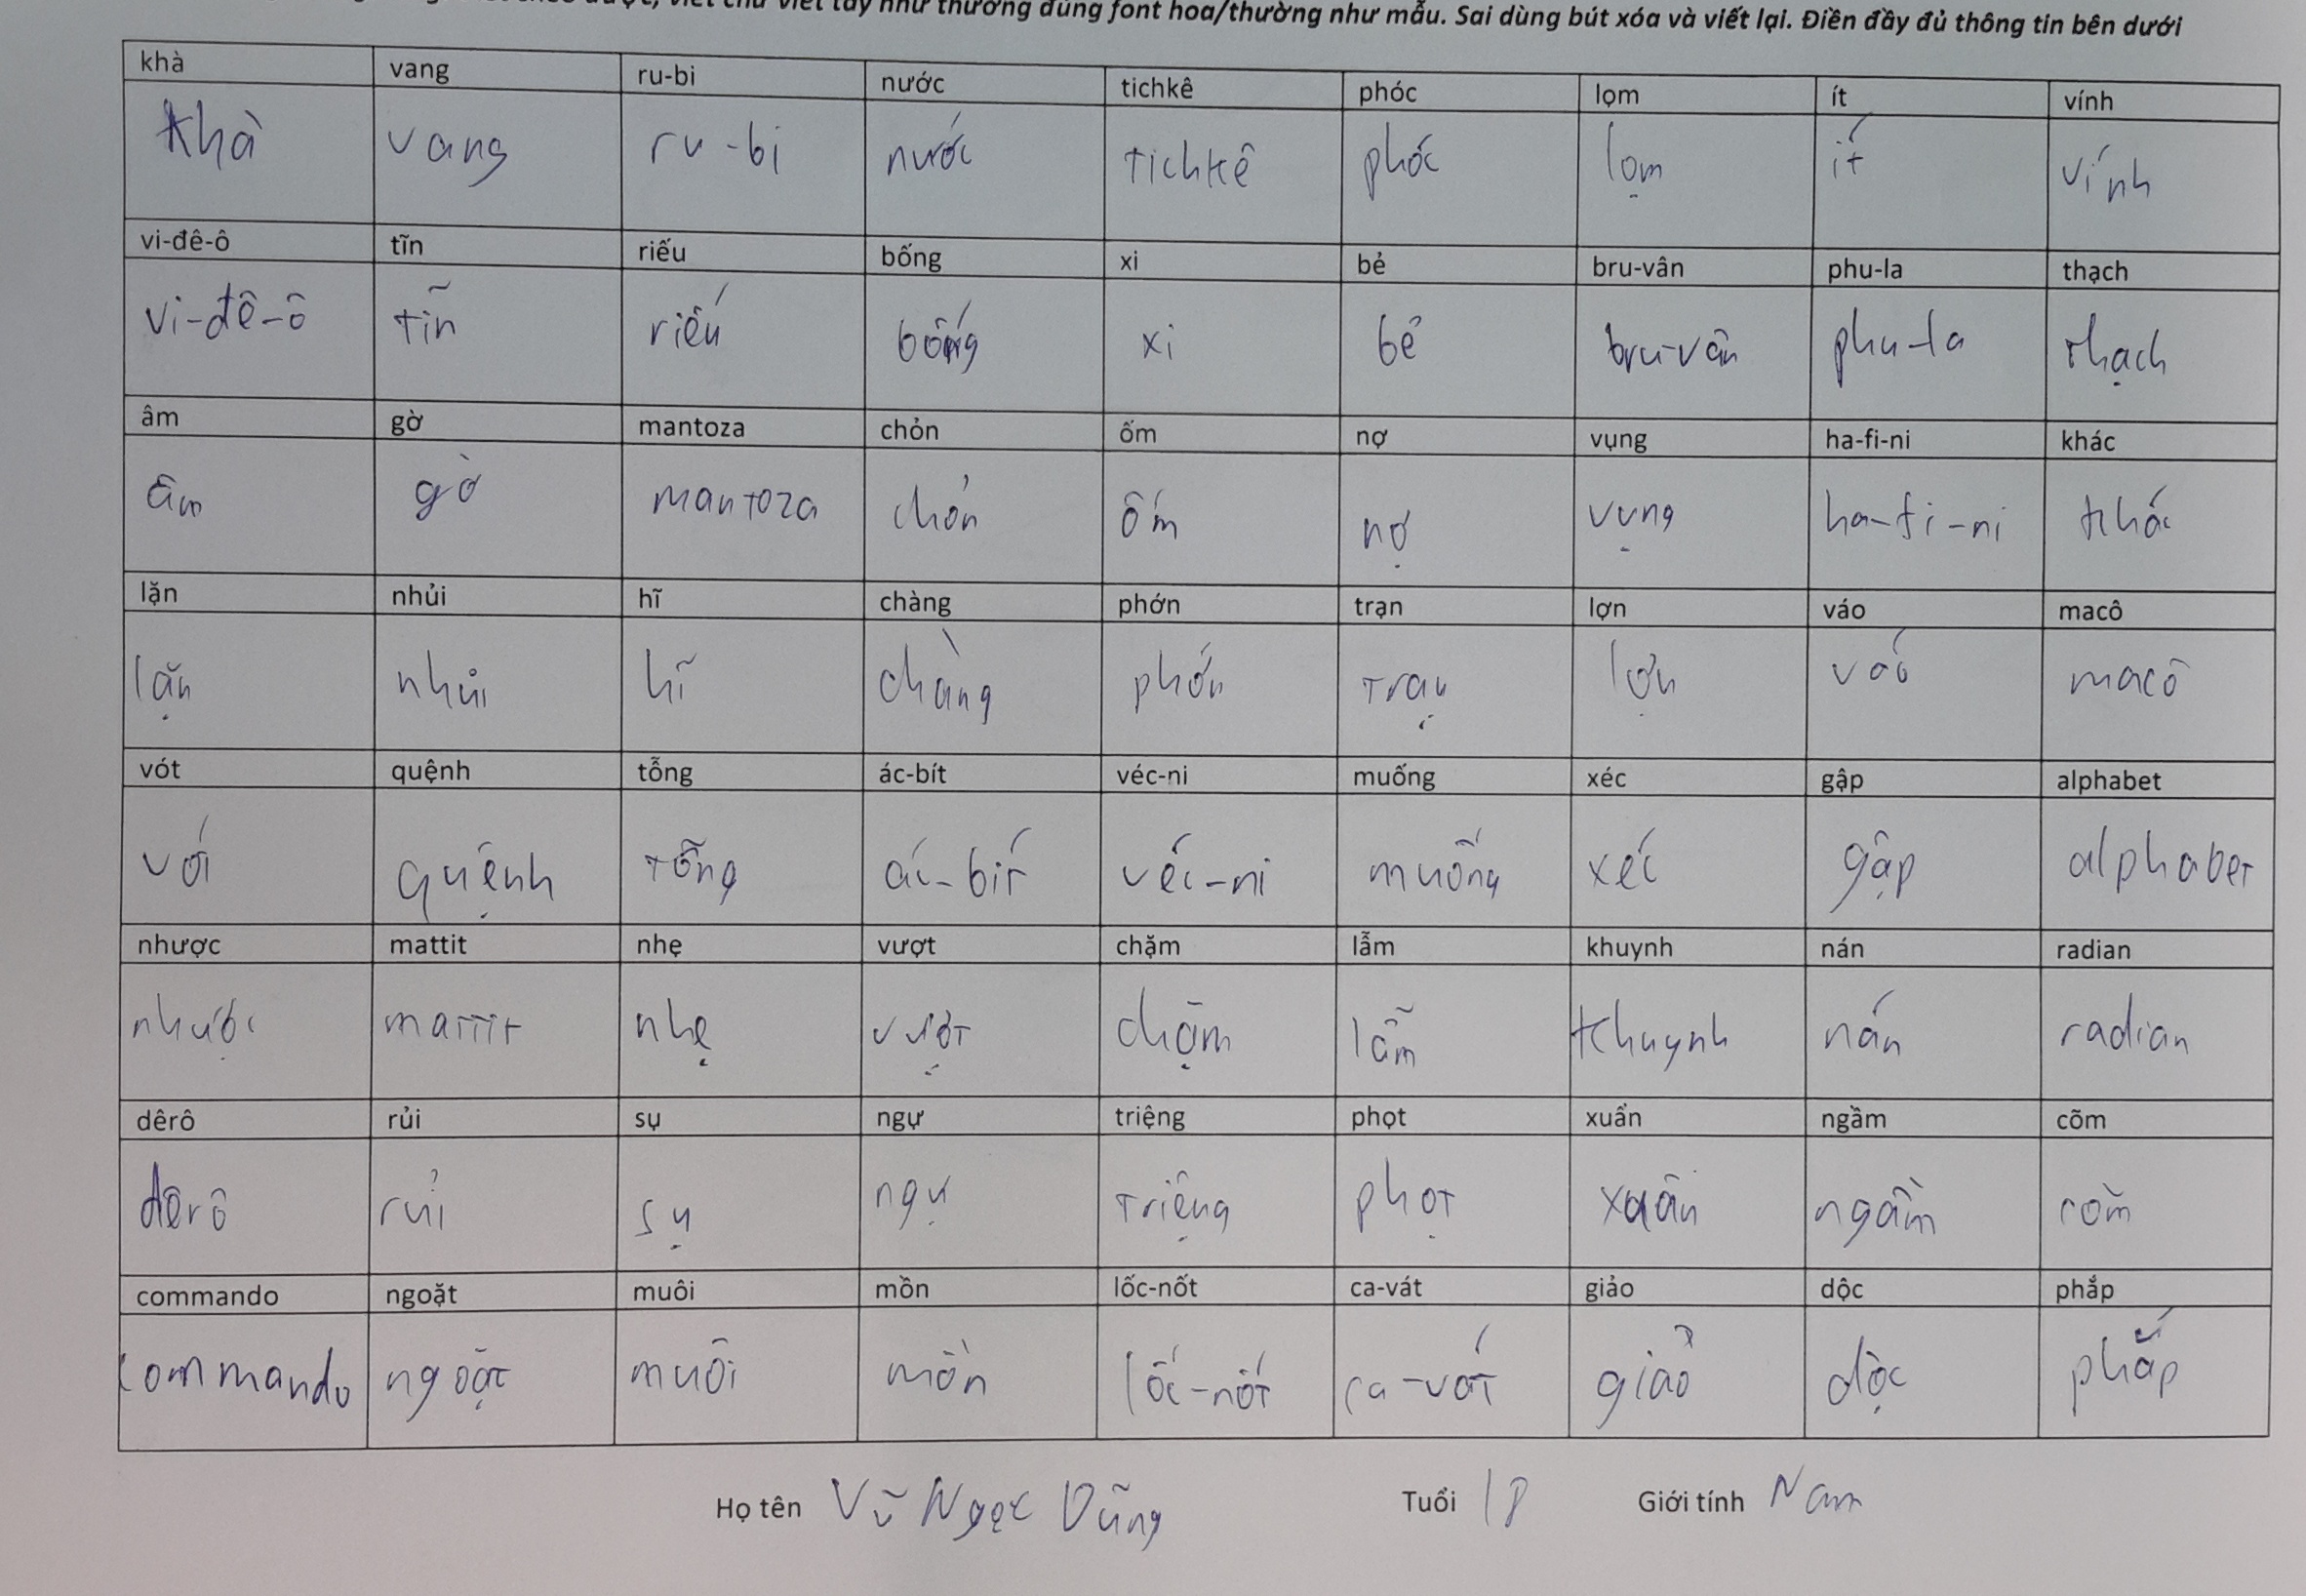 viết chữ viết tay như thường đúng font hoa/thường như mẫu. Sai dùng bút xóa và viết lại. Điền đầy đủ thông tin bên dưới
khà vang ru-bi nước tichkê phóc lọm ít vính
khà vang ru-bi nước tichkê phóc lọm ít vính
vi-đê-ô tĩn riếu bống xi bẻ bru-vân phu-la thạch
vi-đê-ô tĩn riếu bống xi bẻ bru-vân phu-la thạch
âm gờ mantoza chỏn ốm nợ vụng ha-fi-ni khác
âm gờ mantoza chỏn ốm nợ vụng ha-fi-ni khác
lặn nhủi hĩ chàng phớn trạn lợn váo macô
lặn nhủi hĩ chàng phớn trạn lợn váo macô
vót quệnh tỗng ác-bít véc-ni muống xéc gập alphabet
với quệnh tỗng ác-bít véc-ni muống xéc gập alphabet
nhược mattit nhẹ vượt chặm lẫm khuynh nán radian
nhược mattit nhẹ vượt chặm lẫm khuynh nán radian
dêrô rủi sụ ngự triệng phọt xuẩn ngầm cõm
dêrô rủi sụ ngự triệng phọt xuẩn ngầm cõm
commando ngoặt muôi mồn lốc-nốt ca-vát giảo dộc phắp
commando ngoặt muôi mồn lốc-nốt ca-vát giảo dộc phắp
Họ tên Vũ Ngọc Dũng Tuổi 18 Giới tính Nam